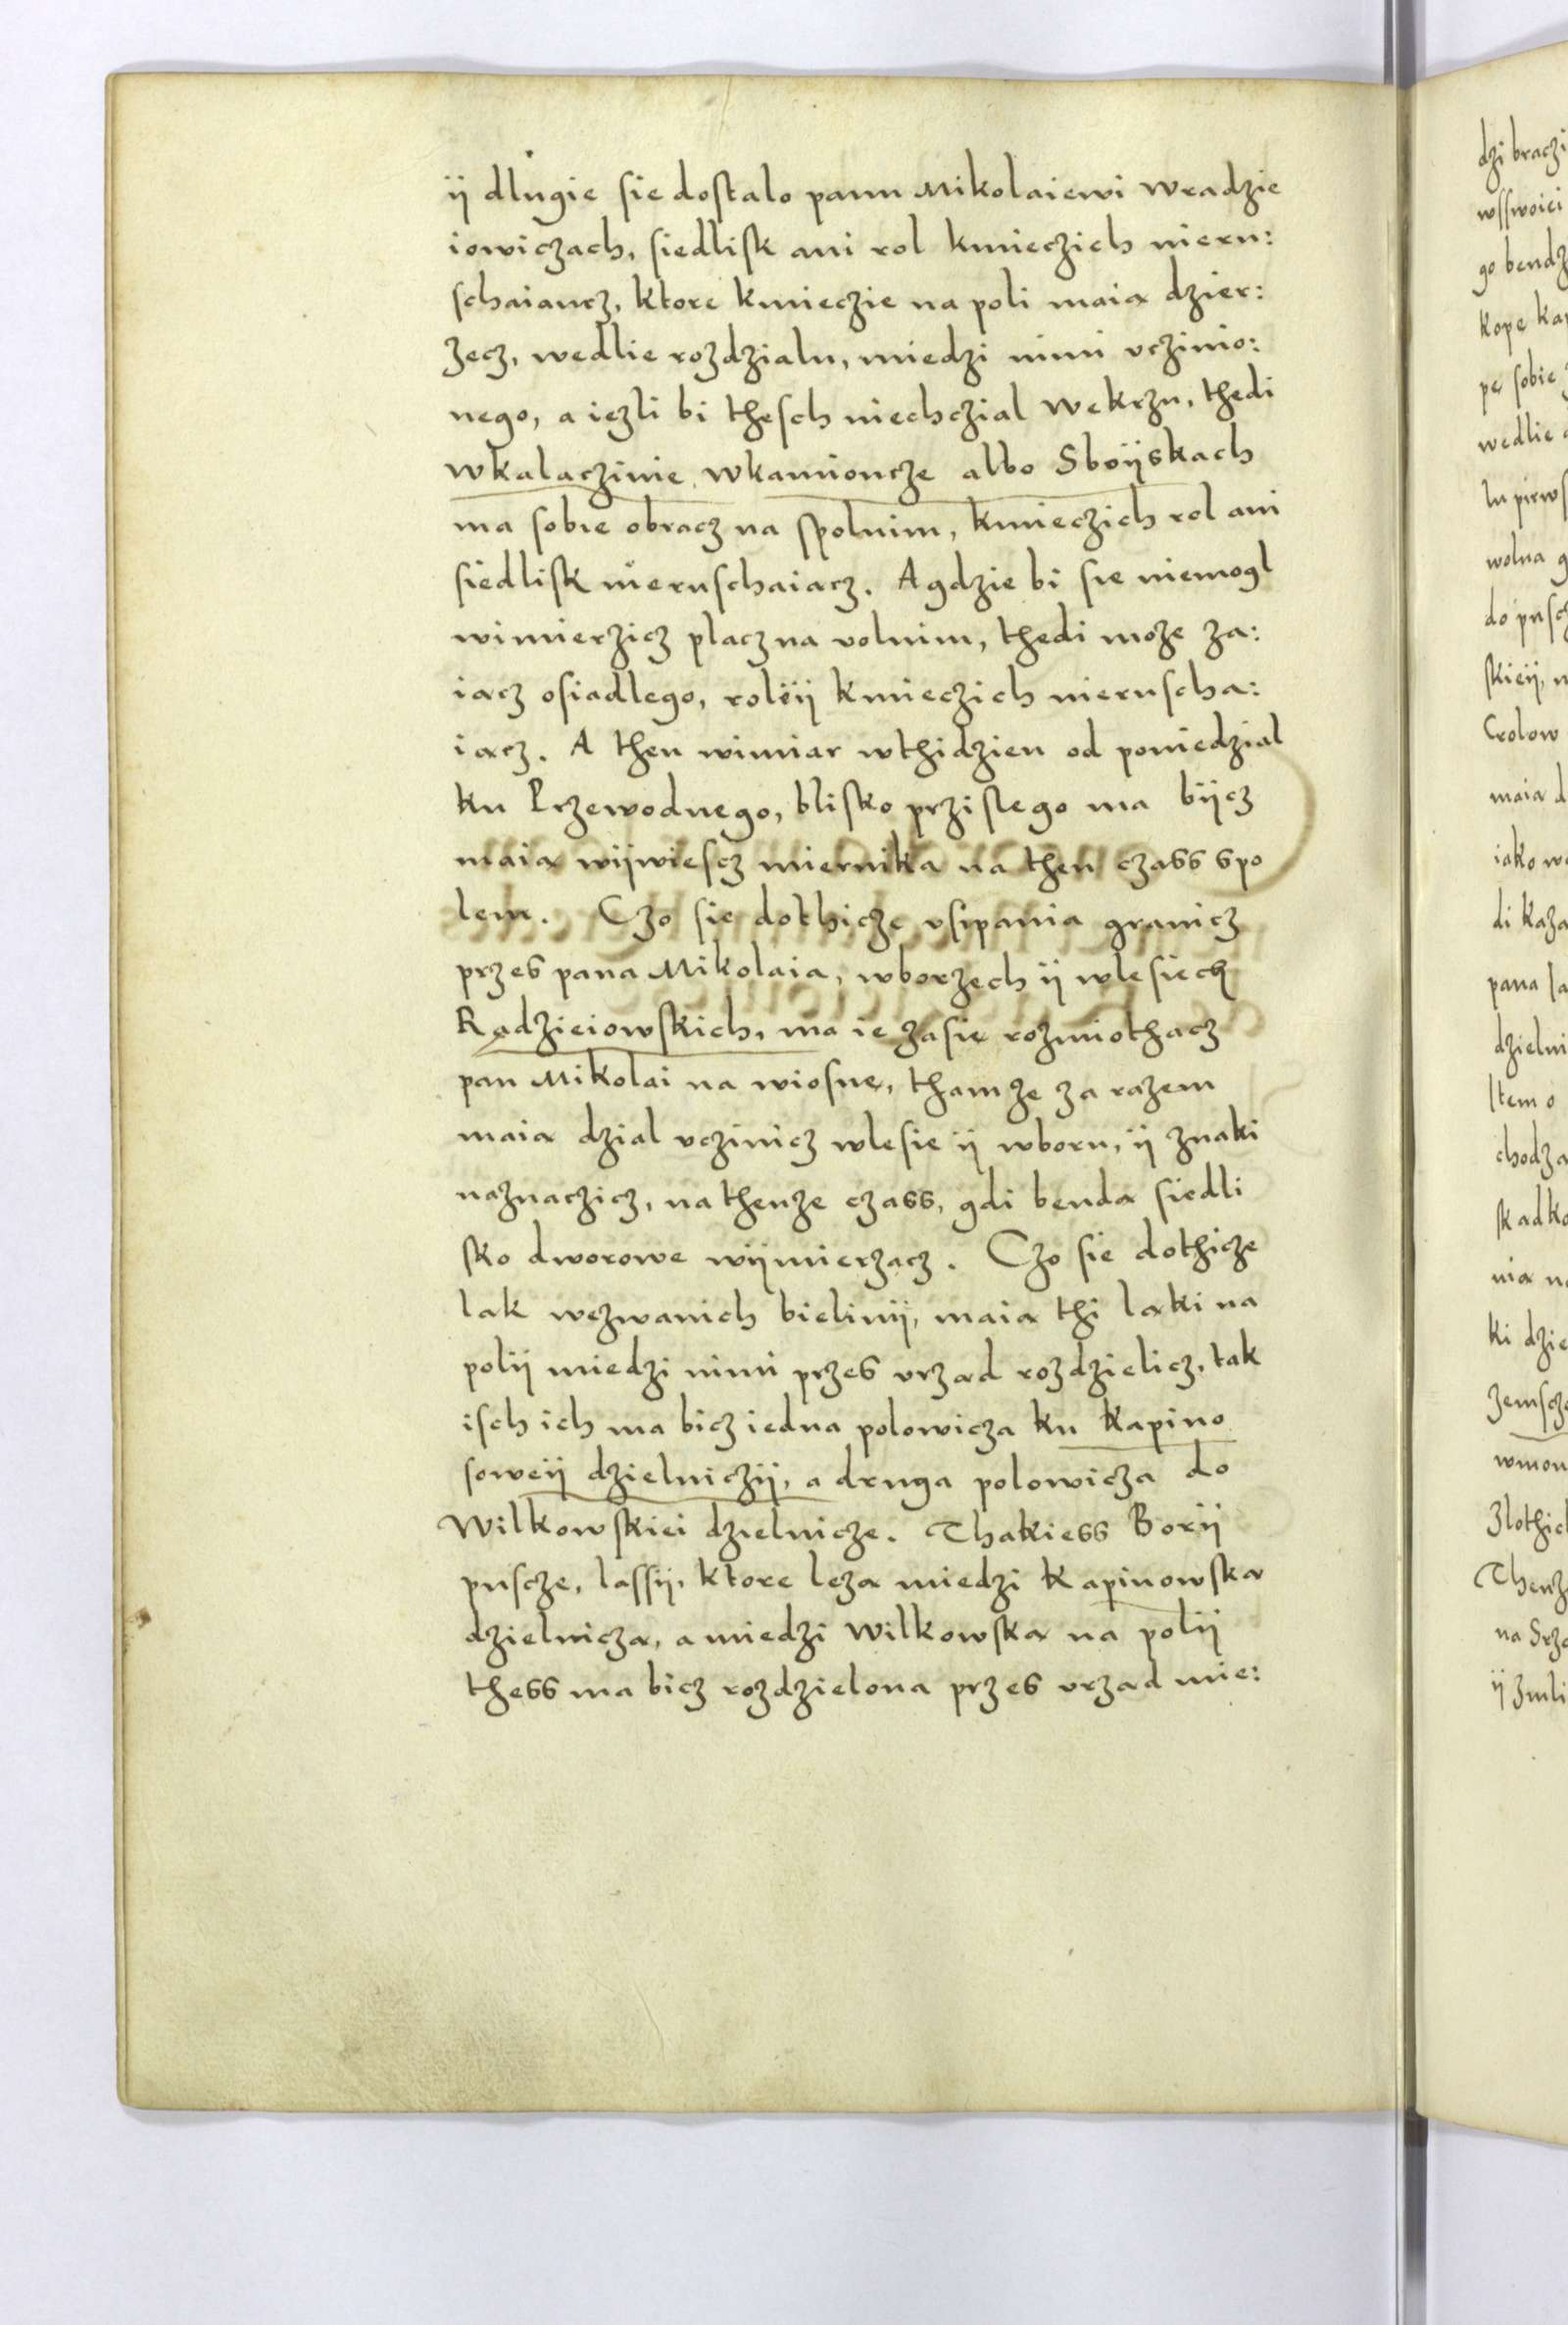 ÿ dlugie sie dostalo panu Mikolaiewi wradzie
iowiczach, siedlisk ani rol kmieczich nieru:
schaiancz, ktore kmieczie na poli maia dzier:
zecz, wedlie rozdzialu, miedzi nimi vczinio:
nego, a iezli bi thesch niechczial wekrzu, thedi
wkalaczinie, wkamioncze albo Sbоÿskach
ma sobie obracz na spolnim, kmieczich rol ani
siedlisk nieruschaiacz. A gdzie bi sie niemogl
wimierzicz placz na volnim, thedi moze za:
iacz osiadlego, rolÿ kmieczich nieruscha:
iacz. A then wimiar wthidzien od poniedzial
ku Przewodnego, blisko przislego ma bÿcz
maia wÿwiescz miernika na then czass spo
lem. Czo sie dothicze vsipania granicz
przes pana Mikolaia, wborzech ÿ wlesiech
Radzieiowskich, ma ie zasie rozmiothacz
pan Mikolai na wiosne, thamze za razem
maia dzial vczinicz wlesie ÿ wboru, ÿ znaki
naznaczicz, na thenze czass, gdi benda siedli
sko dworowe wÿmierzacz. Czo sie dothicze
lak wezwanich bielinÿ, maia thi laki na
polÿ miedzi nimi przes vrzad rozdzielicz, tak
isch ich ma bicz iedna polowicza ku Kapino
soweÿ dzielniczÿ, a druga polowicza do
Wilkowskiei dzielnicze. Thakiess Borÿ
puscze, lassÿ, ktore leza miedzi Kapinowska
dzielnicza, a miedzi Wilkowska na polÿ
thess ma bicz rozdzielona przes vrzad mie:
dzi braczi
wsswoiei
go bendz
kope
pe sobie
wedlie
wolna
Crolow
maia d
iako
di kaza
pana
dzielni
Item o
chodza
nia
ki dzie
Zlothich
Thenz
ÿ